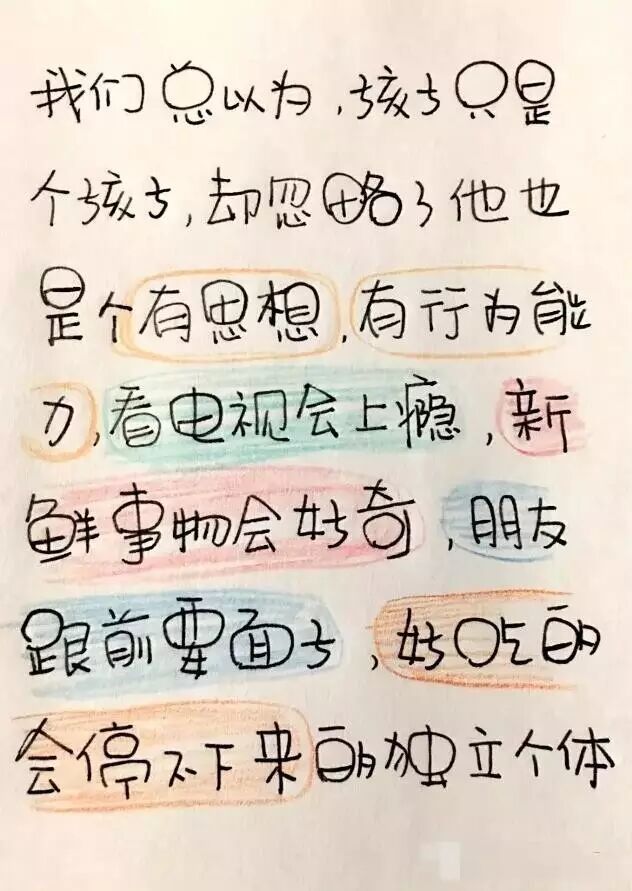 我们总以为,孩子只是
个孩子,却忽略了他也
是个有思想,有行为能
力,看电视会上瘾,新
鲜事物会好奇,朋友
跟前要面子,好吃的
会停不下来的独立个体